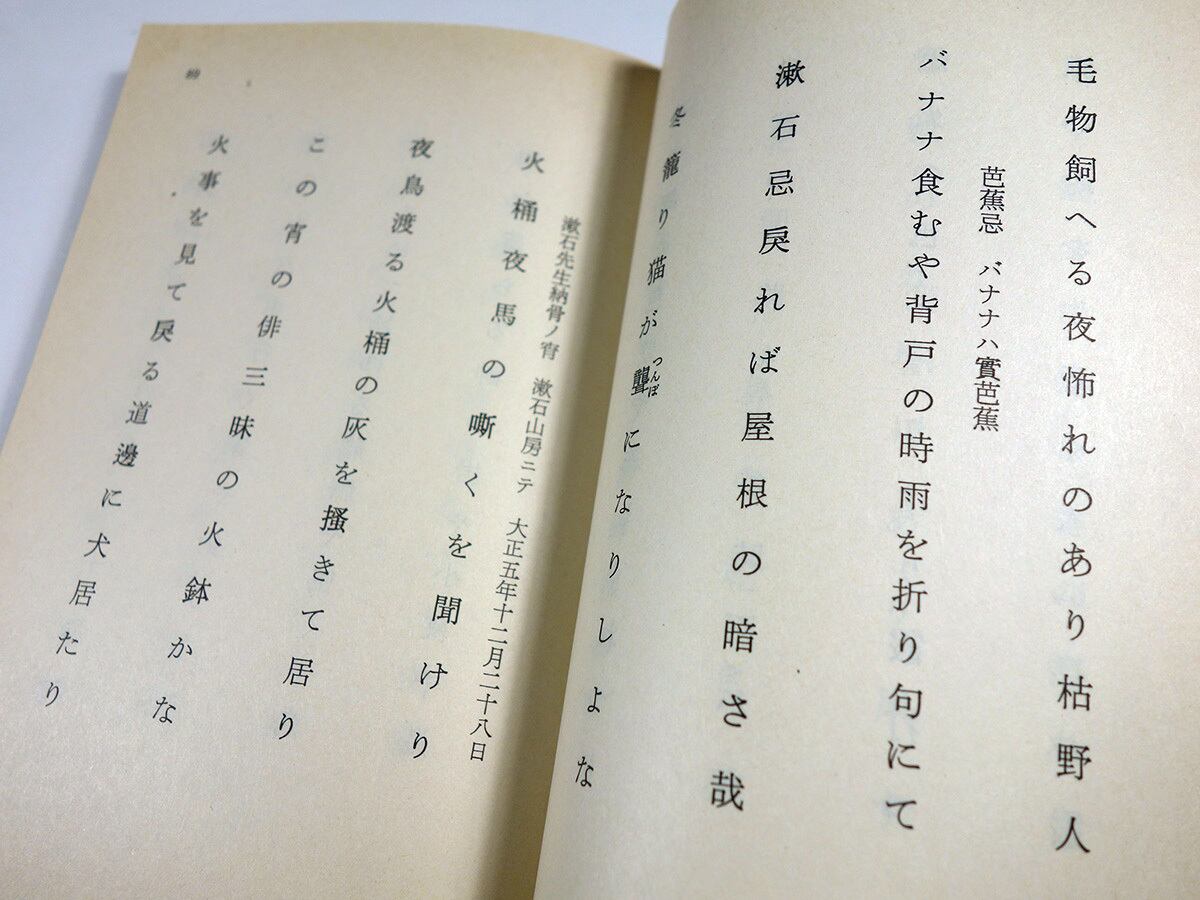 毛物飼へる夜怖れのあり枯野人
芭蕉忌　バナナハ實芭蕉
バナナ食むや背戸の時雨を折り句にて
漱石忌戻れば屋根の暗さ哉
冬籠り猫が聾になりしよな
つんぼ
漱石先生納骨ノ宵　漱石山房ニテ　大正五年十二月二十八日
火桶夜馬の嘶くを聞けり
夜鳥渡る火桶の灰を掻きて居り
この宵の俳三昧の火鉢かな
火事を見て戻る道邊に犬居たり